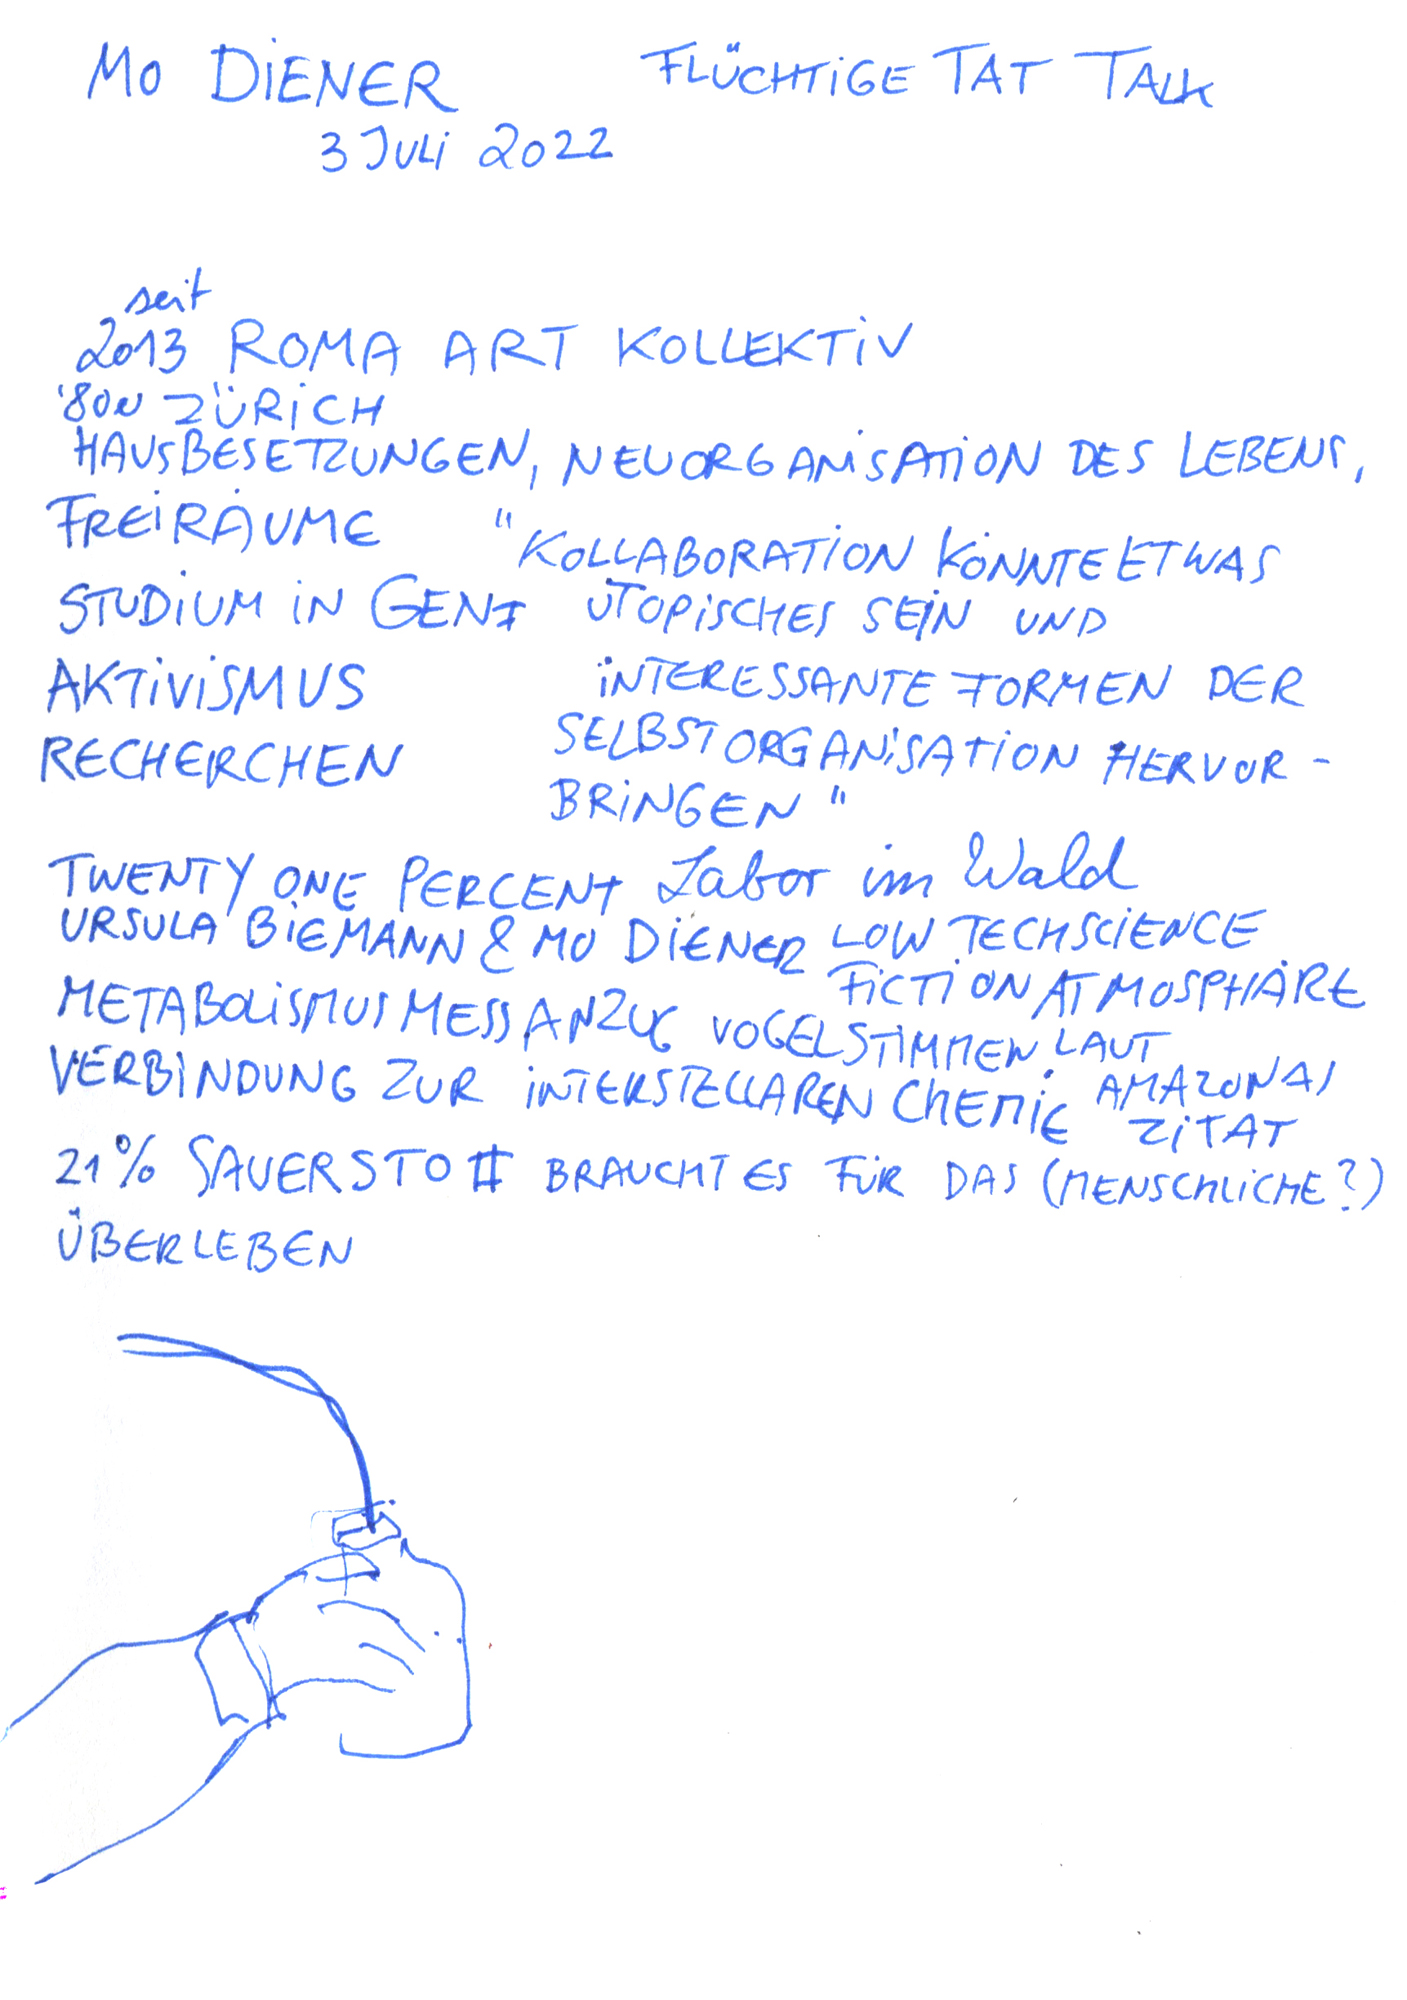 MO DIENER FLÜCHTIGE TAT TALK
3 JULI 2022
seit
2013 ROMA ART KOLLEKTIV
'80N ZÜRICH
HAUSBESETZUNGEN, NEUORGANISATION DES LEBENS,
FREIRÄUME
STUDIUM IN GENF
AKTIVISMUS
RECHERCHEN
"KOLLABORATION KÖNNTE ETWAS
UTOPISCHES SEIN UND
INTERESSANTE FORMEN DER
SELBSTORGANISATION HERVOR-
BRINGEN"
TWENTY ONE PERCENT Labor im Wald
URSULA BIEMANN & MO DIENER LOW TECHSCIENCE
FICTION ATMOSPHÄRE
METABOLISMUSMESSANZUG VOGELSTIMMEN LAUT
VERBINDUNG ZUR INTERSTELLAREN CHEMIE AMAZONAS
ZITAT
21% SAUERSTOFF BRAUCHT ES FÜR DAS (MENSCHLICHE?)
ÜBERLEBEN